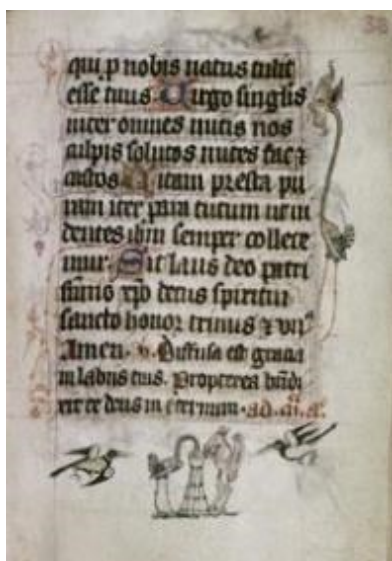 38
qui p nobis natus tulit
esse tuus. Virgo singlis
inter omnes mitis nos
culpis solutos mites fac ⁊
castos. Vitam presta pu
ram iter para tutum ut ui
dentes ihm semper collete
mur. Sit laus deo patri
summo xpo decus spiritui
sancto honor trinus ⁊ vnᵘˢ
Amen. v. Diffusa est gracia
in labiis tuis. Propterea bn̄di
xit te deus in eternum. ad